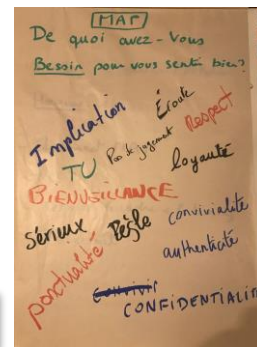 MAP
De quoi avez-vous
Besoin pour vous sentir bien?
Implication
Écoute
Respect
TU
Pas de jugement
loyauté
BIENVEILLANCE
Sérieux
Règle
convivialité
ponctualité
authenticité
CONVIVIA
CONFIDENTIALIT